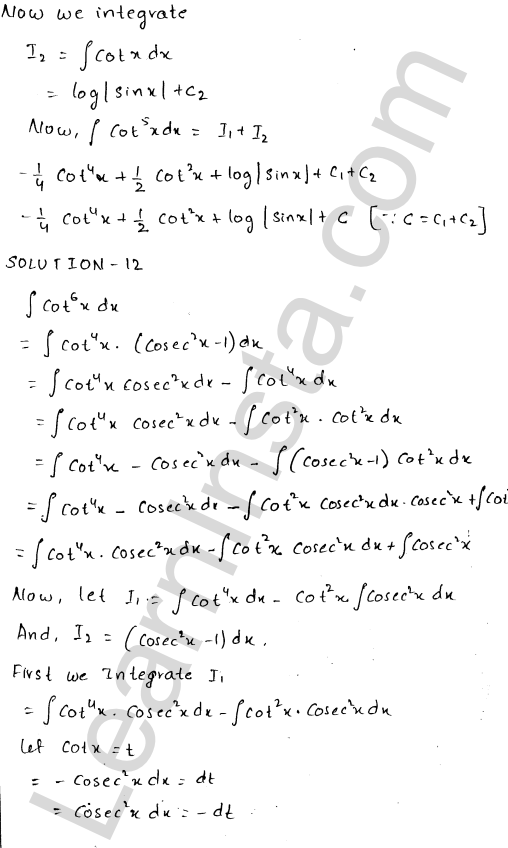 Now we integrate
I₂ = ∫cotx dx
= log|sinx| + c₂
Now, ∫ Cot⁵x dx = I₁ + I₂
-1/4 Cot⁴x + 1/2 Cot²x + log|sinx| + C₁ + C₂
-1/4 Cot⁴x + 1/2 Cot²x + log |sinx| + C [∵ C = C₁ + C₂]
SOLUTION - 12
∫ Cot⁶x dx
= ∫ Cot⁴x . (Cosec²x - 1) dx
= ∫ Cot⁴x cosec²x dx - ∫ Cot⁴x dx
= ∫ Cot⁴x cosec²x dx - ∫ Cot²x . Cot²x dx
= ∫ Cot⁴x - Cosec²x dx - ∫ (Cosec²x - 1) Cot²x dx
= ∫ Cot⁴x - Cosec²x dx - ∫ Cot²x Cosec²x dx . Cosec²x + ∫ Cot
= ∫ Cot⁴x . Cosec²x dx - ∫ Cot²x Cosec²x dx + ∫ Cosec²x
Now, let I₁ = ∫ Cot⁴x dx - Cot²x ∫ Cosec²x dx
And, I₂ = (Cosec²x - 1) dx.
First we Integrate I₁
= ∫ Cot⁴x . Cosec²x dx - ∫ cot²x . Cosec²x dx
Let Cotx = t
= - Cosec²x dx = dt
= Cosec²x dx = - dt
LearnInsta.com